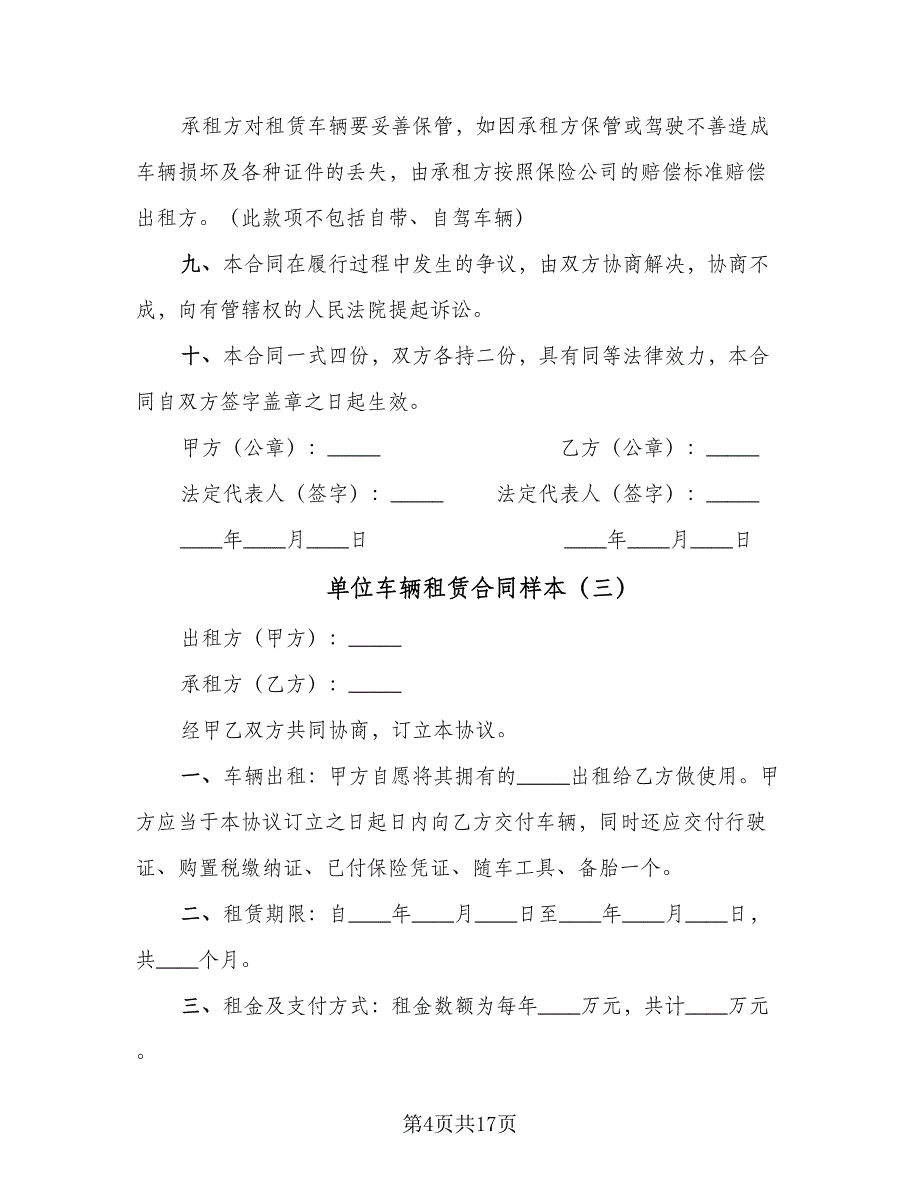 承租方对租赁车辆要妥善保管，如因承租方保管或驾驶不善造成
车辆损坏及各种证件的丢失，由承租方按照保险公司的赔偿标准赔偿
出租方。（此款项不包括自带、自驾车辆）
九、本合同在履行过程中发生的争议，由双方协商解决，协商不
成，向有管辖权的人民法院提起诉讼。
十、本合同一式四份，双方各持二份，具有同等法律效力，本合
同自双方签字盖章之日起生效。
甲方（公章）：_____ 乙方（公章）：_____
法定代表人（签字）：_____ 法定代表人（签字）：_____
____年____月____日 ____年____月____日
单位车辆租赁合同样本（三）
出租方（甲方）：_____
承租方（乙方）：_____
经甲乙双方共同协商，订立本协议。
一、车辆出租：甲方自愿将其拥有的_____出租给乙方做使用。甲
方应当于本协议订立之日起日内向乙方交付车辆，同时还应交付行驶
证、购置税缴纳证、已付保险凭证、随车工具、备胎一个。
二、租赁期限：自____年____月____日至____年____月____日，
共____个月。
三、租金及支付方式：租金数额为每年____万元，共计____万元
。
第4页共17页